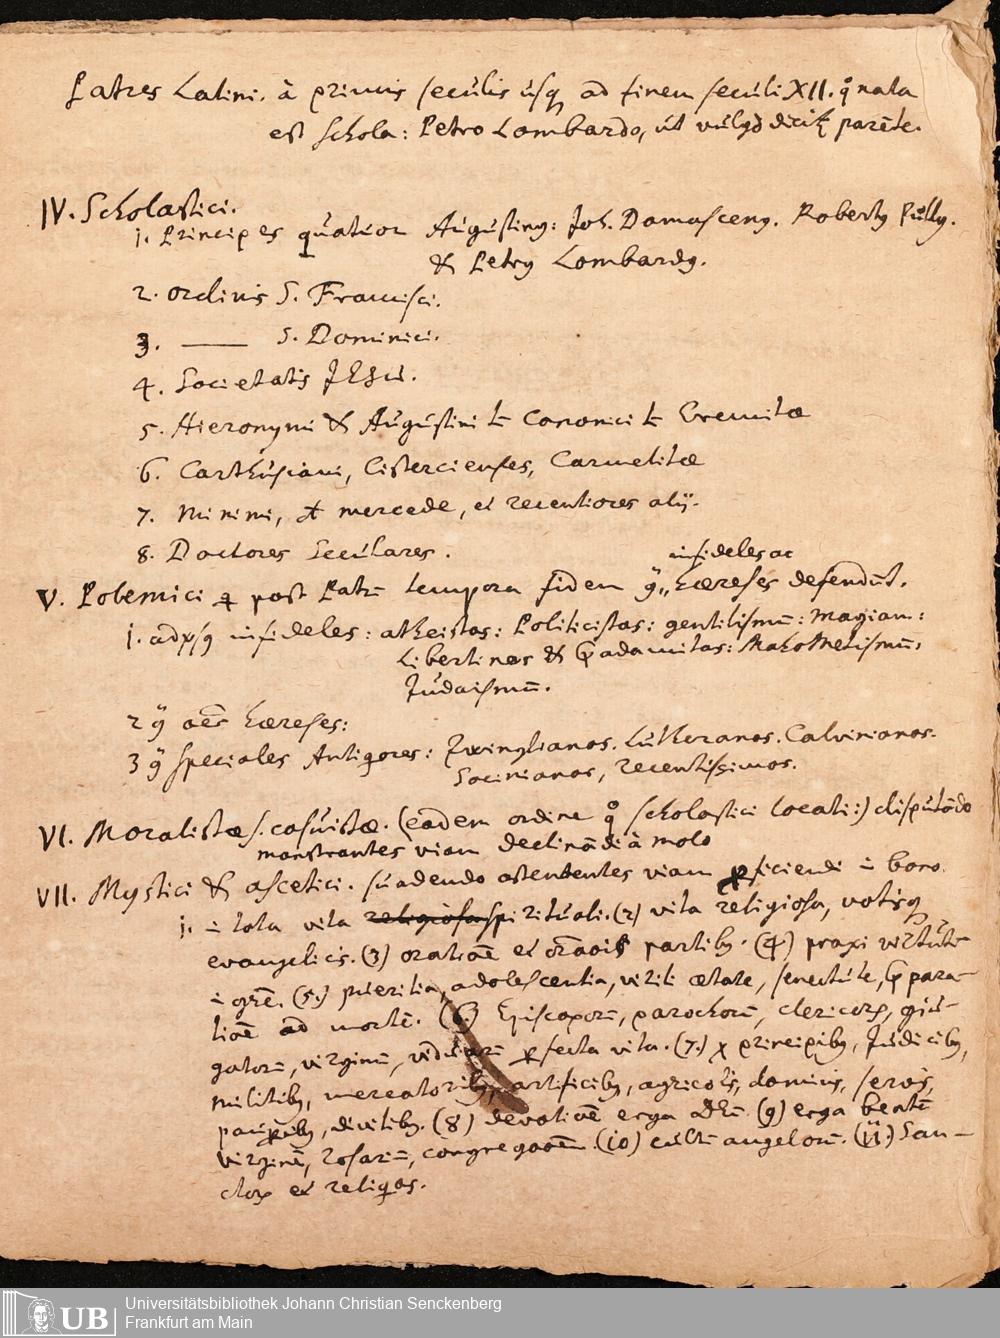 Patres Latini. à primis seculis usq ad finem seculi XII. q nata
est schola: Petro Lombardo, ut vulgò dicit parēte.
IV. Scholastici.
1. Principes quatuor Augustinq: Joh. Damascenq. Robertq Pullq.
& Petrq Lombardq.
2. ordinis S. Francisci.
3. —— S. Dominici.
4. Societatis JEsu.
5. Hieronymi & Augustini tū Canonici tū Eremitæ
6. Carthusiani, Cistercienses, Carmelitæ
7. Minimi, de mercede, et recentiores alij.
8. Doctores Seculares.
infideles ac
V. Polemici q post Patrū tempora fidem hæreses defendūt.
1. infideles: atheistas: Politicistas: gentilismū: Magiam:
Libertinos & Præadamitas: Mahometismū,
Judaismū.
2 oēs hæreses:
3 speciales Antiquores: Zwinglianos. Lutheranos. Calvinianos.
Socinianos, recentissimos.
VI. Moralistæ s. casuistæ. (eâdem ordine q scholastici locati:) disputādo
monstrantes viam declinādi à malo
VII. Mystici & ascetici. suadendo ostendentes viam pficiendi ī bono.
1. ī tota vita religiosa spirituali. (2) vita religiosa, votisq
evangelicis. (3) oratiōe et orāōis partibq. (4) praxi virtutū
ī gr̄e. (5.) pueritia, adolescentia, virili ætate, senectute, præpara-
tiōe ad mortē. (6.) Episcoporū, parochorū, clericorū, cōju-
gatorū, virginū, viduarū pfecta vita. (7.) principibq, Judicibq,
militibq, mercatoribq, artificibq, agricolis, dominis, servis,
paupibq, divitibq. (8) devotiōe erga DEū. (9) erga beatā
virginē, rosariū, congregaōem. (10) cultū angelorū. (11.) San-
ctorū et reliqas.
Universitätsbibliothek Johann Christian Senckenberg
Frankfurt am Main
UB